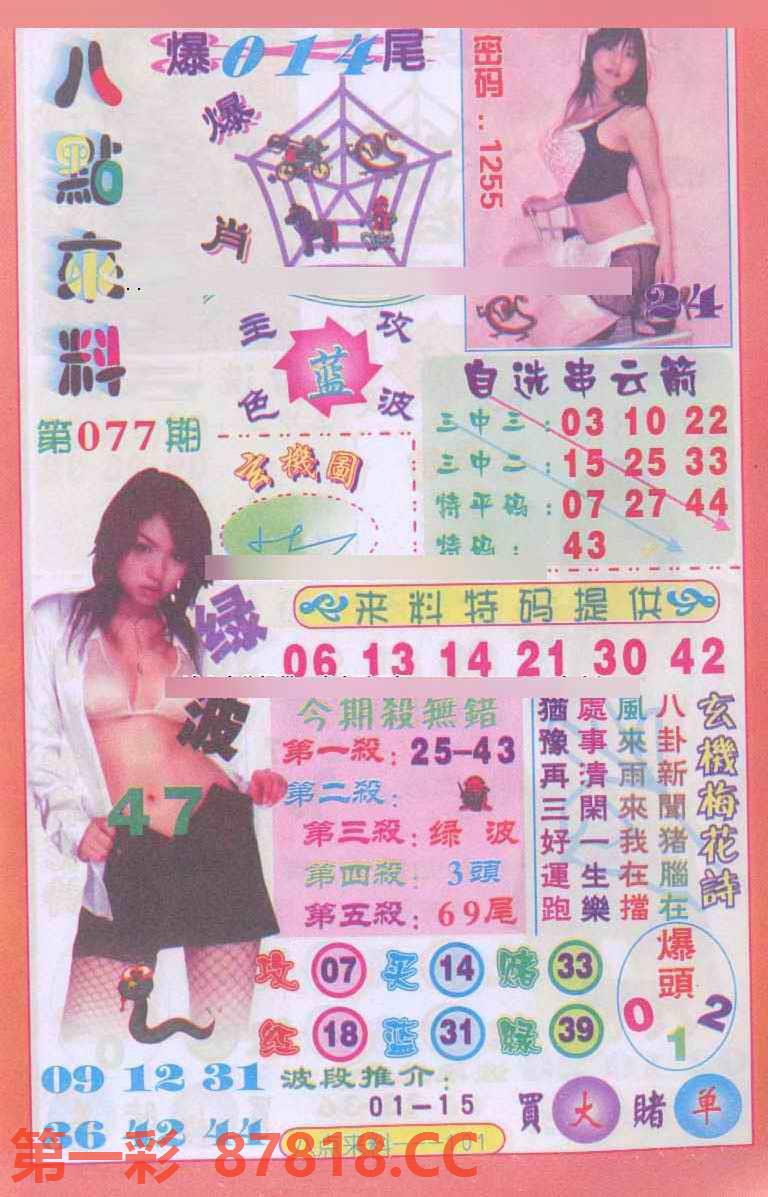 八點來料
爆014尾
爆肖
密码：1255
24
主攻
蓝
色波
第077期
自选串云箭
三中三：03 10 22
三中二：15 25 33
特平码：07 27 44
特码：43
玄機圖
来料特码提供
06 13 14 21 30 42
绿波
47
今期殺無錯
第一殺：25-43
第二殺：
第三殺：绿波
第四殺：3頭
第五殺：69尾
玄機梅花詩
八卦新聞猪腦在
風來雨來我在擋
處事潰閑一生樂
猶豫再三好運跑
攻 07 买 14 赌 33
红 18 蓝 31 绿 39
爆頭
0 1 2
09 12 31
36 42 44
波段推介：
01-15
買大賭单
第一彩 87818.CC